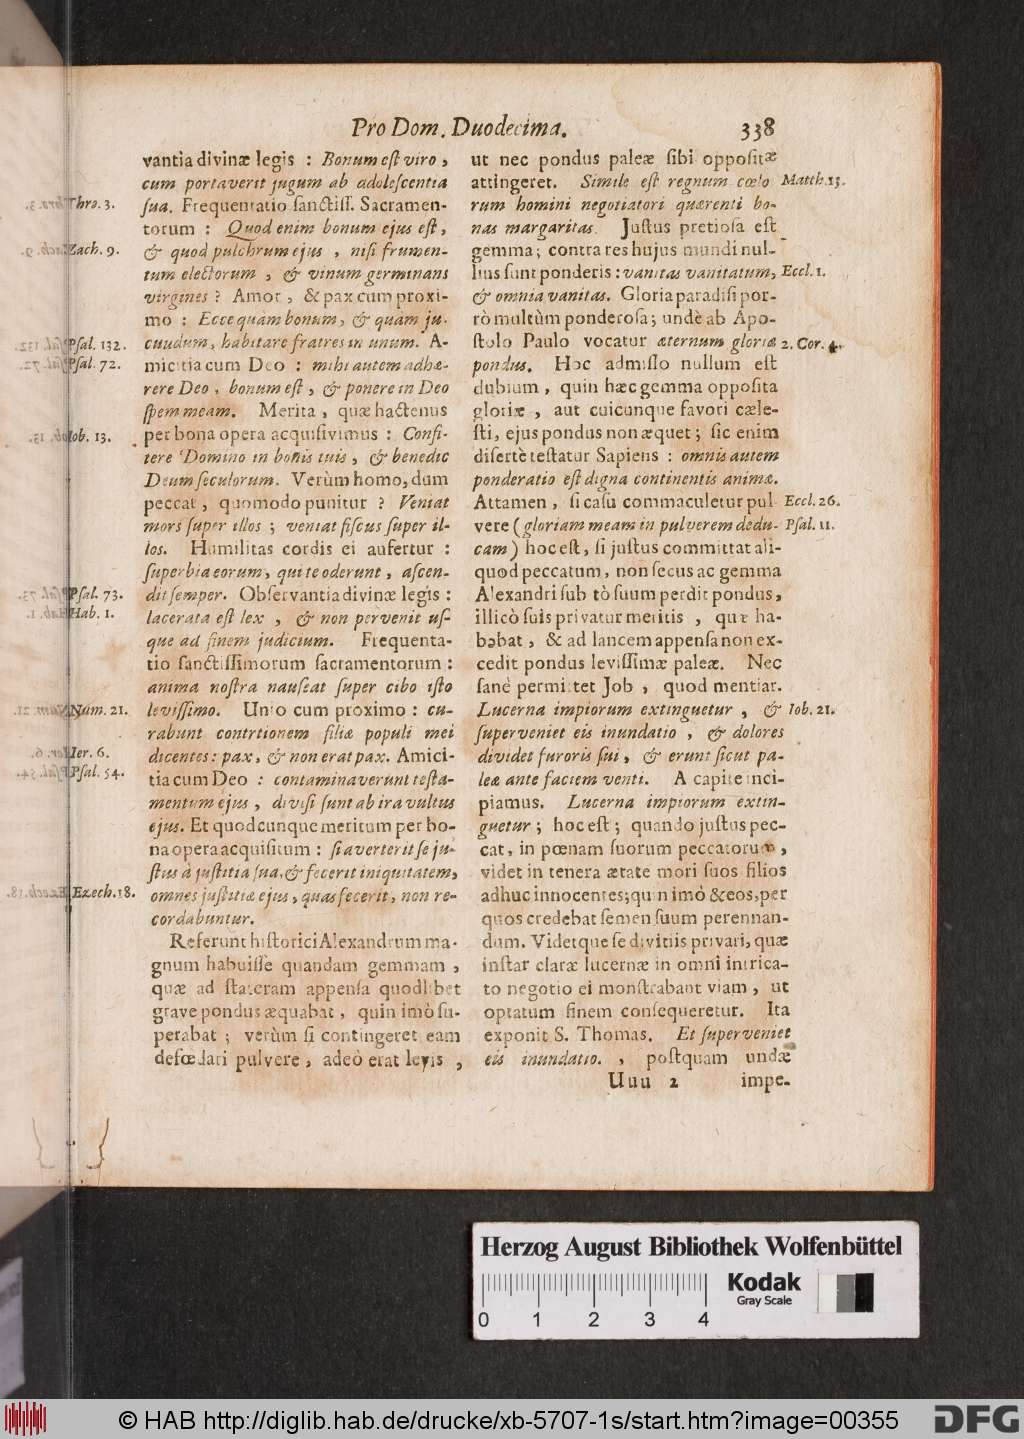 Pro Dom. Duodecima. 338
vantia divinæ legis : Bonum eſt viro,
cum portaverit jugum ab adoleſcentia
Thro. 3. ſua. Frequentatio ſanctiſſ. Sacramen-
torum : Quod enim bonum ejus eſt,
Zach. 9. & quod pulchrum ejus , niſi frumen-
tum electorum , & vinum germinans
virgines ? Amor, & pax cum proxi-
mo : Ecce quàm bonum, & quàm ju-
Pſal. 132. cundum, habitare fratres in unum. A-
Pſal. 72. micitia cum Deo : mihi autem adhæ-
rere Deo, bonum eſt , & ponere in Deo
ſpem meam. Merita , quæ hactenus
Iob. 13. per bona opera acquiſivimus : Confi-
tere Domino in bonis tuis, & benedic
Deum ſeculorum. Verùm homo, dum
peccat, quomodo punitur ? Veniat
mors ſuper illos ; veniat fiſcus ſuper il-
los. Humilitas cordis ei aufertur :
ſuperbia eorum, qui te oderunt, aſcen-
Pſal. 73. dit ſemper. Obſervantia divinæ legis :
Hab. 1. lacerata eſt lex , & non pervenit uſ-
que ad finem judicium. Frequenta-
tio ſanctiſſimorum ſacramentorum :
anima noſtra nauſeat ſuper cibo iſto
Num. 21. leviſſimo. Unio cum proximo : cu-
rabunt contrtionem filiæ populi mei
Ier. 6. dicentes: pax, & non erat pax. Amici-
Pſal. 54. tia cum Deo : contaminaverunt teſta-
mentum ejus , diviſi ſunt ab ira vultus
ejus. Et quodcunque meritum per bo-
na opera acquiſitum : ſi averterit ſe ju-
ſtus à juſtitia ſua, & fecerit iniquitatem,
Ezech. 18. omnes juſtitiæ ejus, quas fecerit, non re-
cordabuntur.
Referunt hiſtorici Alexandrum ma-
gnum habuiſſe quandam gemmam ,
quæ ad ſtateram appenſa quodlibet
grave pondus æquabat , quin imò ſu-
perabat ; verùm ſi contingeret eam
defœdari pulvere, adeò erat levis ,
ut nec pondus paleæ ſibi oppoſitæ
attingeret. Simile eſt regnum cœlo Matth. 13.
rum homini negotiatori quærenti bo-
nas margaritas. Juſtus pretioſa eſt
gemma; contra res hujus mundi nul-
lius ſunt ponderis : vanitas vanitatum, Eccl. 1.
& omnia vanitas. Gloria paradiſi por-
rò multùm ponderoſa; undè ab Apo-
ſtolo Paulo vocatur æternum gloriæ 2. Cor. 4.
pondus. Hoc admiſſo nullum eſt
dubium , quin hæc gemma oppoſita
gloriæ , aut cuicunque favori cæle-
ſti, ejus pondus non æquet ; ſic enim
diſertè teſtatur Sapiens : omnis autem
ponderatio eſt digna continentis animæ.
Attamen , ſi caſu commaculetur pul Eccl. 26.
vere ( gloriam meam in pulverem dedu- Pſal. 11.
cam ) hoc eſt, ſi juſtus committat ali-
quod peccatum, non ſecus ac gemma
Alexandri ſub tò ſuum perdit pondus,
illicò ſuis privatur meritis , quæ ha-
bebat, & ad lancem appenſa non ex-
cedit pondus leviſſimæ paleæ. Nec
ſanè permittet Job , quod mentiar.
Lucerna impiorum extinguetur , & Iob. 21.
ſuperveniet eis inundatio , & dolores
dividet furoris ſui, & erunt ſicut pa-
leæ ante faciem venti. A capite inci-
piamus. Lucerna impiorum extin-
guetur ; hoc eſt ; quando juſtus pec-
cat, in pœnam ſuorum peccatorum ,
videt in tenera ætate mori ſuos filios
adhuc innocentes; quin imó & eos, per
quos credebat ſemen ſuum perennan-
dum. Videtque ſe divitiis privari, quæ
inſtar claræ lucernæ in omni intrica-
to negotio ei monſtrabant viam , ut
optatum finem conſequeretur. Ita
exponit S. Thomas. Et ſuperveniet
eis inundatio. , poſtquam undæ
Uuu 2 impe-
Herzog August Bibliothek Wolfenbüttel
Kodak
Gray Scale
0 1 2 3 4
© HAB http://diglib.hab.de/drucke/xb-5707-1s/start.htm?image=00355 DFG